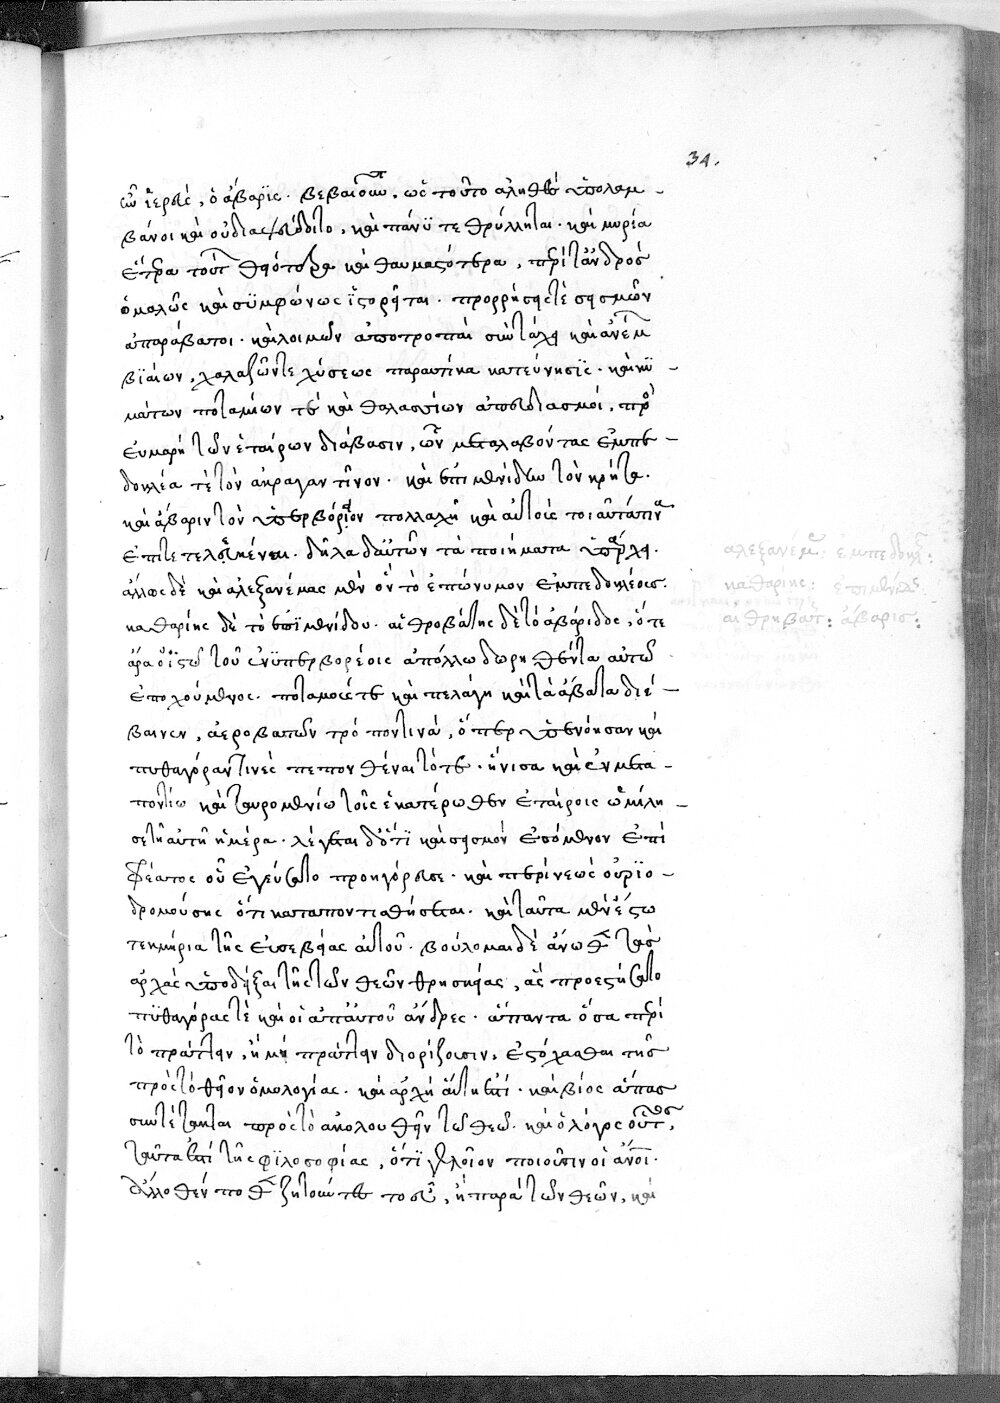 34.
ὢν ἱερεύς, ὁ ἄβαρϊς. βεβαιοῦντ, ὡς τοῦτο ἀληθὲς ὑπολαμ-
βάνοι καὶ οὐδιαψεύδοιτο, καὶ πάνϋ τεθρύλληται. καὶ μυρία
ἕτερα τούτων θειότερα καὶ θαυμαστότερα, περὶ τἀνδρός
ὁμαλῶς καὶ σϋμφώνως ἱστορῆται. προρρήσεις τὲ σεισμῶν
ἀπαράβατοι. καὶ λοιμῶν ἀποτροπαὶ σὺν τάχει καὶ ἀνέμων
βϊαίων, χαλαζῶν τε χύσεως παραυτίκα κατεύνησϊς. καὶ κϋ-
μάτων ποταμίων τὲ καὶ θαλασσίων ἀπευδιασμοί, πρὸ
εὐμαρῆ τῶν ἑταίρων διάβασιν, ὧν μεταλαβόντας ἐμπε-
δοκλέα τὲ τὸν ἀκραγαντῖνον. καὶ ἐπιμενίδην τὸν κρῆτα.
καὶ ἄβαριν τὸν ὑπερβόρειον πολλαχῆ καὶ αὐτοὺς τοιαῦτά τινα
ἐπιτετελεκέναι. δῆλα δ' αὐτῶν τὰ ποιήματα ὑπάρχει.
ἄλλως δὲ καὶ ἀλεξανέμας μὲν ὂν τὸ ἐπώνυμον ἐμπεδοκλέους.
καθαρτὴς δὲ τὸ ἐπϊμενίδου. αἰθροβάτης δὲ τὸ ἀβάριδος, ὅτι
ἄρα ὀϊστῶ τοῦ ἐν ὑπερβορέοις ἀπόλλωνος δωρηθέντι αὐτῶ
ἐποχούμενος. ποταμούς τε καὶ πελάγη καὶ τὰ ἄβατα διέ-
βαινεν, ἀεροβατῶν τρόπον τινά, ὅπερ ὑπενόησαν καὶ
πυθαγόραν τινὲς πεπονθέναι τότε. ἡνίκα καὶ ἐν μετα-
ποντίω καὶ ταυρομενίω τοῖς ἑκατέρωθεν ἑταίροις ὡμίλη-
σε τῆ αὐτῆ ἡμέρα. λέγεται δ' ὅτϊ καὶ σεισμὸν ἐσόμενον ἐπὶ
φρέατος οὗ ἐγεύσατο προηγόρευσε. καὶ περὶ νεὼς οὐρϊο-
δρομούσης ὅτι καταποντισθήσεται. καὶ ταῦτα μὲν ἔστω
τεκμήρια τῆς εὐσεβείας αὐτοῦ. βούλομαι δὲ ἄνωθεν τὰς
ἀρχὰς ὑποδεῖξαι τῆς τῶν θεῶν θρησκείας, ἃς προεστήσατο
πϋθαγόρας τὲ καὶ οἱ ἀπ' αὐτοῦ ἄνδρες. ἅπαντα ὅσα περὶ
τὸ πράττειν, ἢ μὴ πράττειν διορίζουσιν, ἐστόχασται τῆς
πρὸς τὸ θεῖον ὁμολογίας. καὶ ἀρχὴ αὕτη ἐστί. καὶ βίος ἅπας
συντέτακται πρὸς τὸ ἀκολουθεῖν τῶ θεῶ. καὶ ὁ λόγος οὗτος,
ταῦτα ἐστὶ τῆς φϊλοσοφίας, ὅτϊ γελοῖον ποιοῦσιν οἱ ἄνοι.
ἄλλοθέν ποθεν ζητοῦντες τὸ εὖ, ἢ παρὰ τῶν θεῶν, καὶ
ἀλεξανέμας: ἐμπεδοκλῆς:
καθαρτὴς: ἐπιμενίδης
αἰθρηβάτης: ἄβαρις: